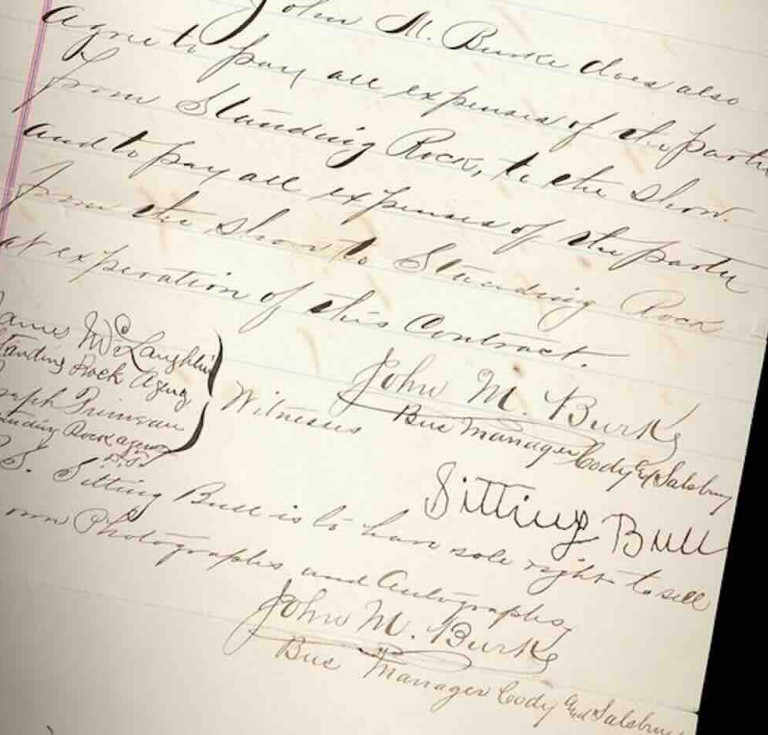 John M. Burke does also
agree to pay all expenses of the party
from Standing Rock, to the Show.
and to pay all expenses of the party
from the Show to Standing Rock
at experation of this Contract.
James McLaughlin
Standing Rock Agency
Joseph Primeau
Standing Rock agency
D.T.
Witnesses
John M. Burke
Bus Manager Cody and Salsbury
Sitting Bull
P.S. Sitting Bull is to have sole right to sell
own Photographs and Autographs
John M. Burke
Bus Manager Cody and Salsbury